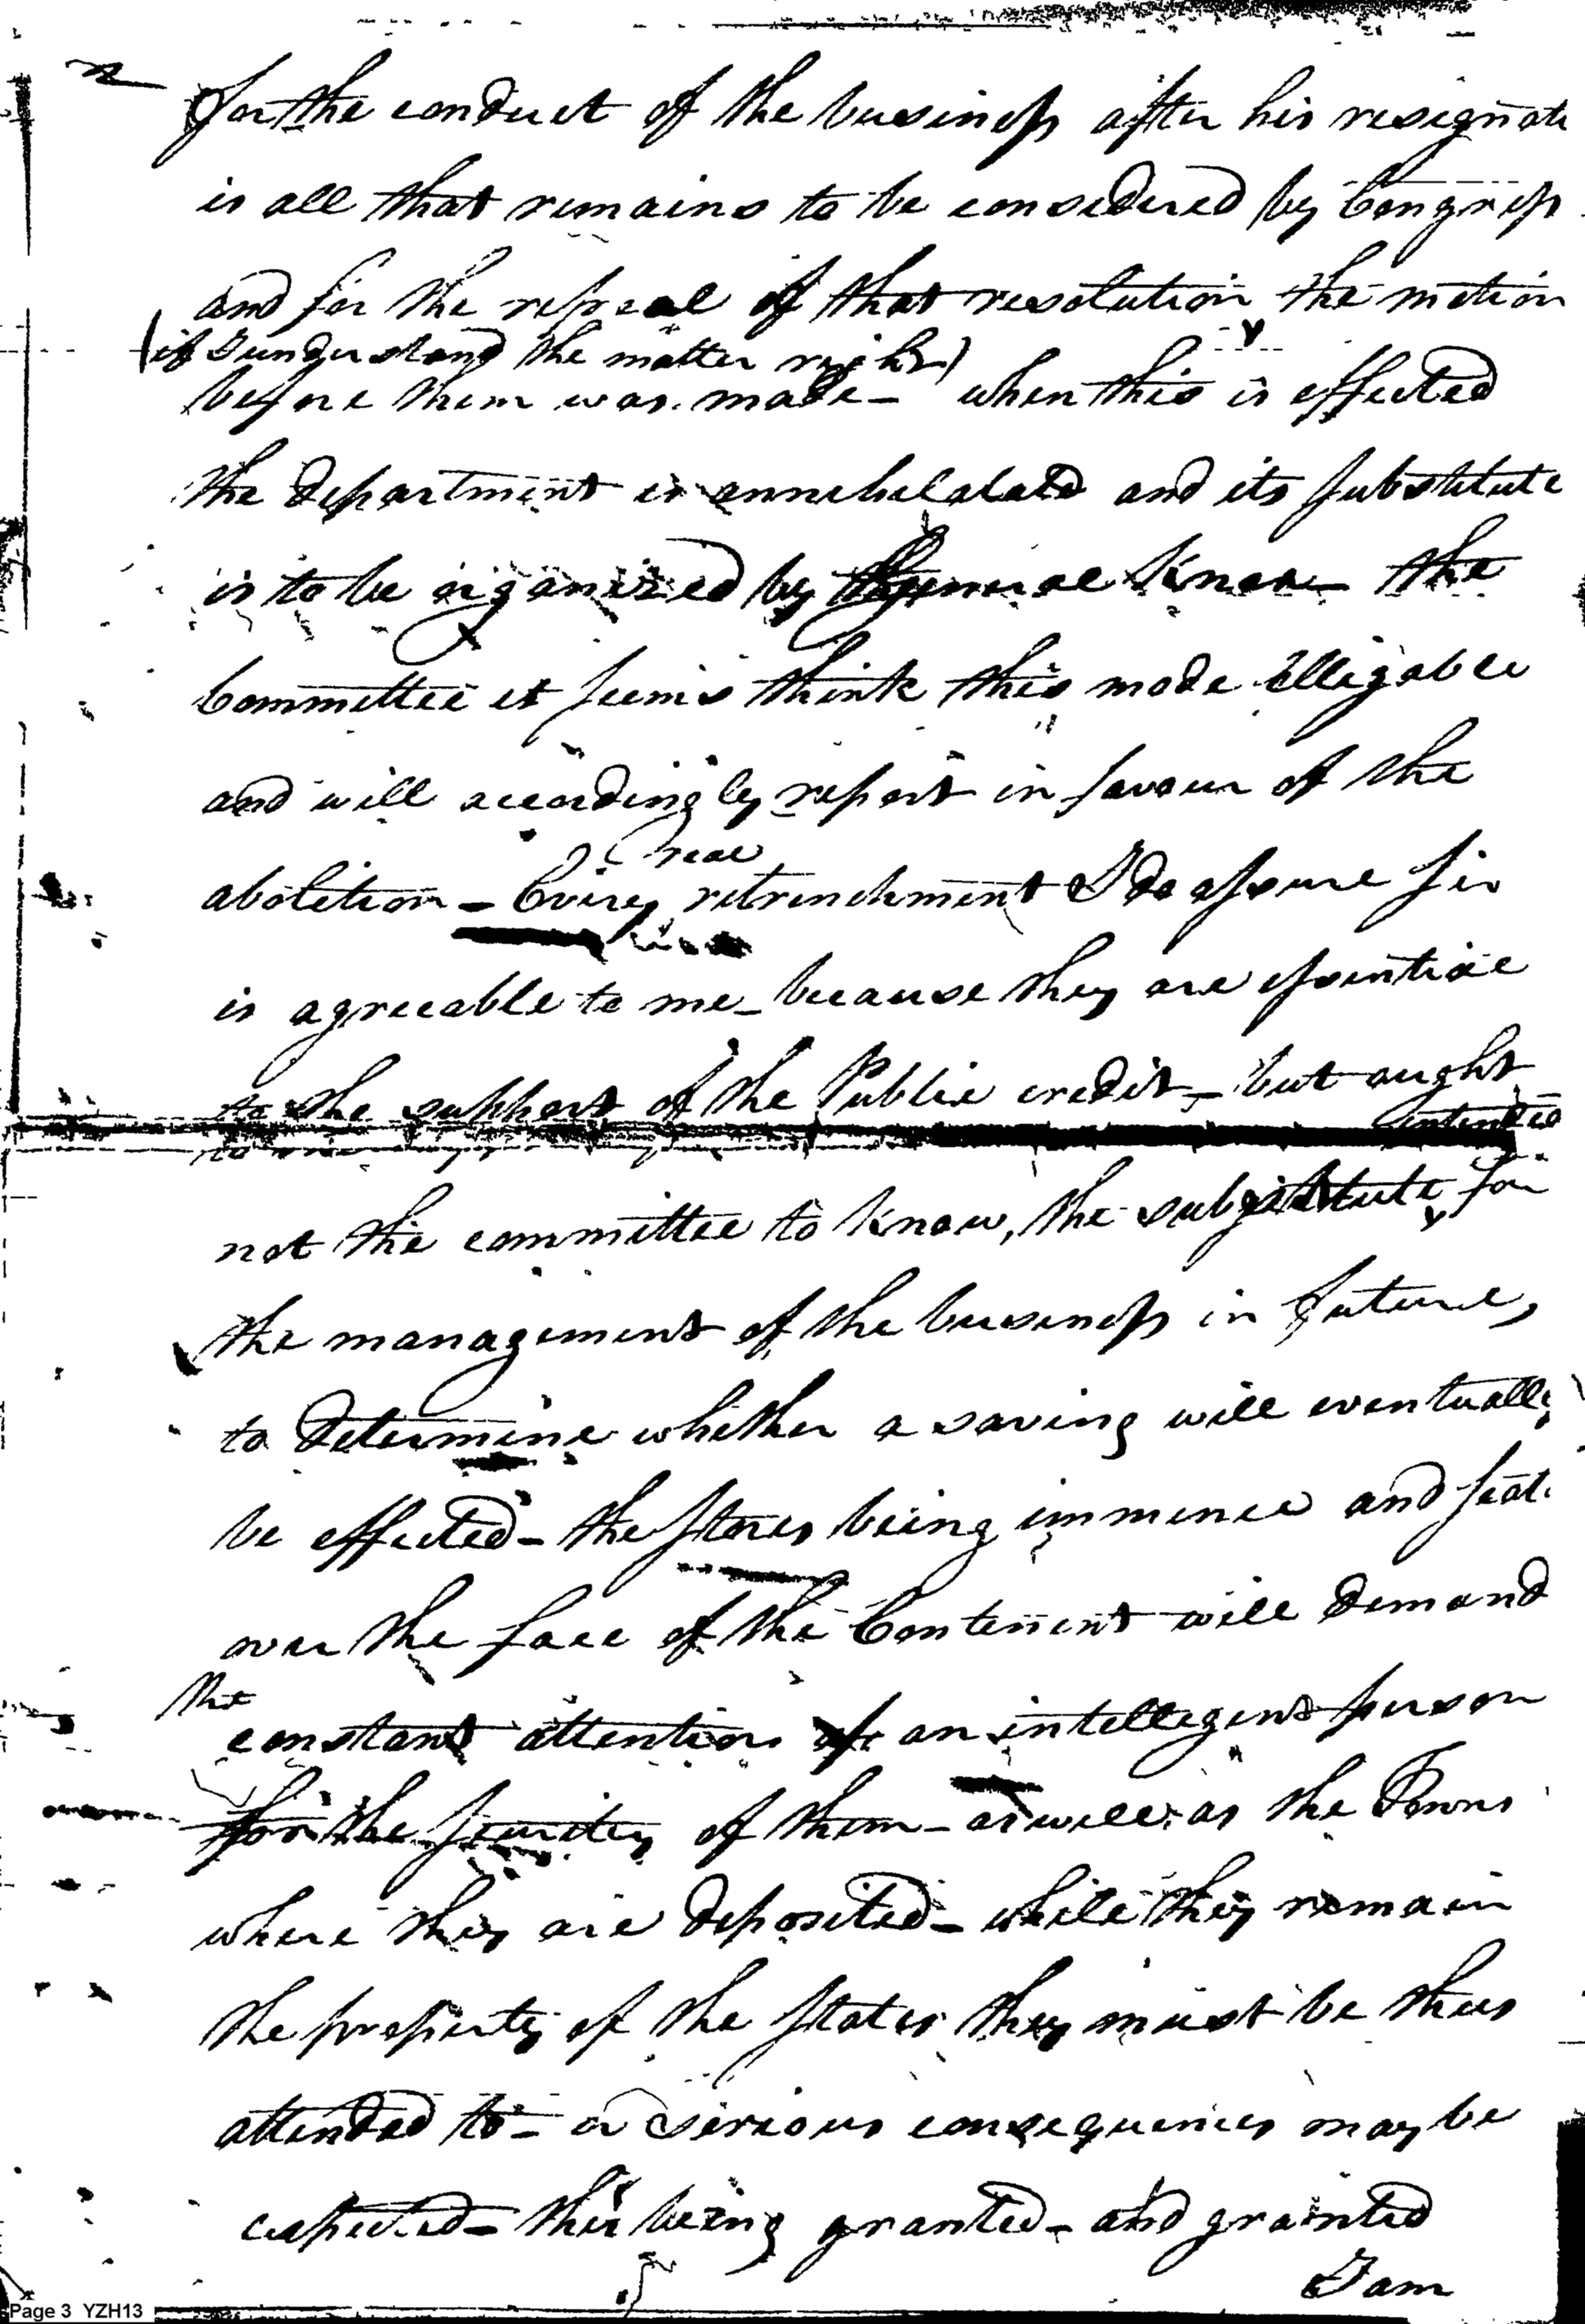 for the conduct of the business after his resignati
is all that remains to be considered by Congress
and for the repeal of that resolution the motion
(if I understand the matter right)
before them was made - when this is effected
the department is annehalated and its substitute
is to be organized by General Knox - the
Committee it seems think this mode Elligable
and will accordingly report in favour of the
real
abolition - Every retrenchment I do assure sir
is agreeable to me - because they are essential
to the support of the Public credit - but ought
intended
not the committee to know, the substitute for
the management of the business in future,
to determine whether a saving will eventually
be effected - the stores being immence and scat
over the face of the Contenent will demand
the
constant attention of an intelligent person
for the security of them - as well as the Towns
where they are deposited - while they remain
the property of the States they must be thus
attended to - or serious consequences may be
expected - this being granted - and granted
I am
Page 3 YZH13